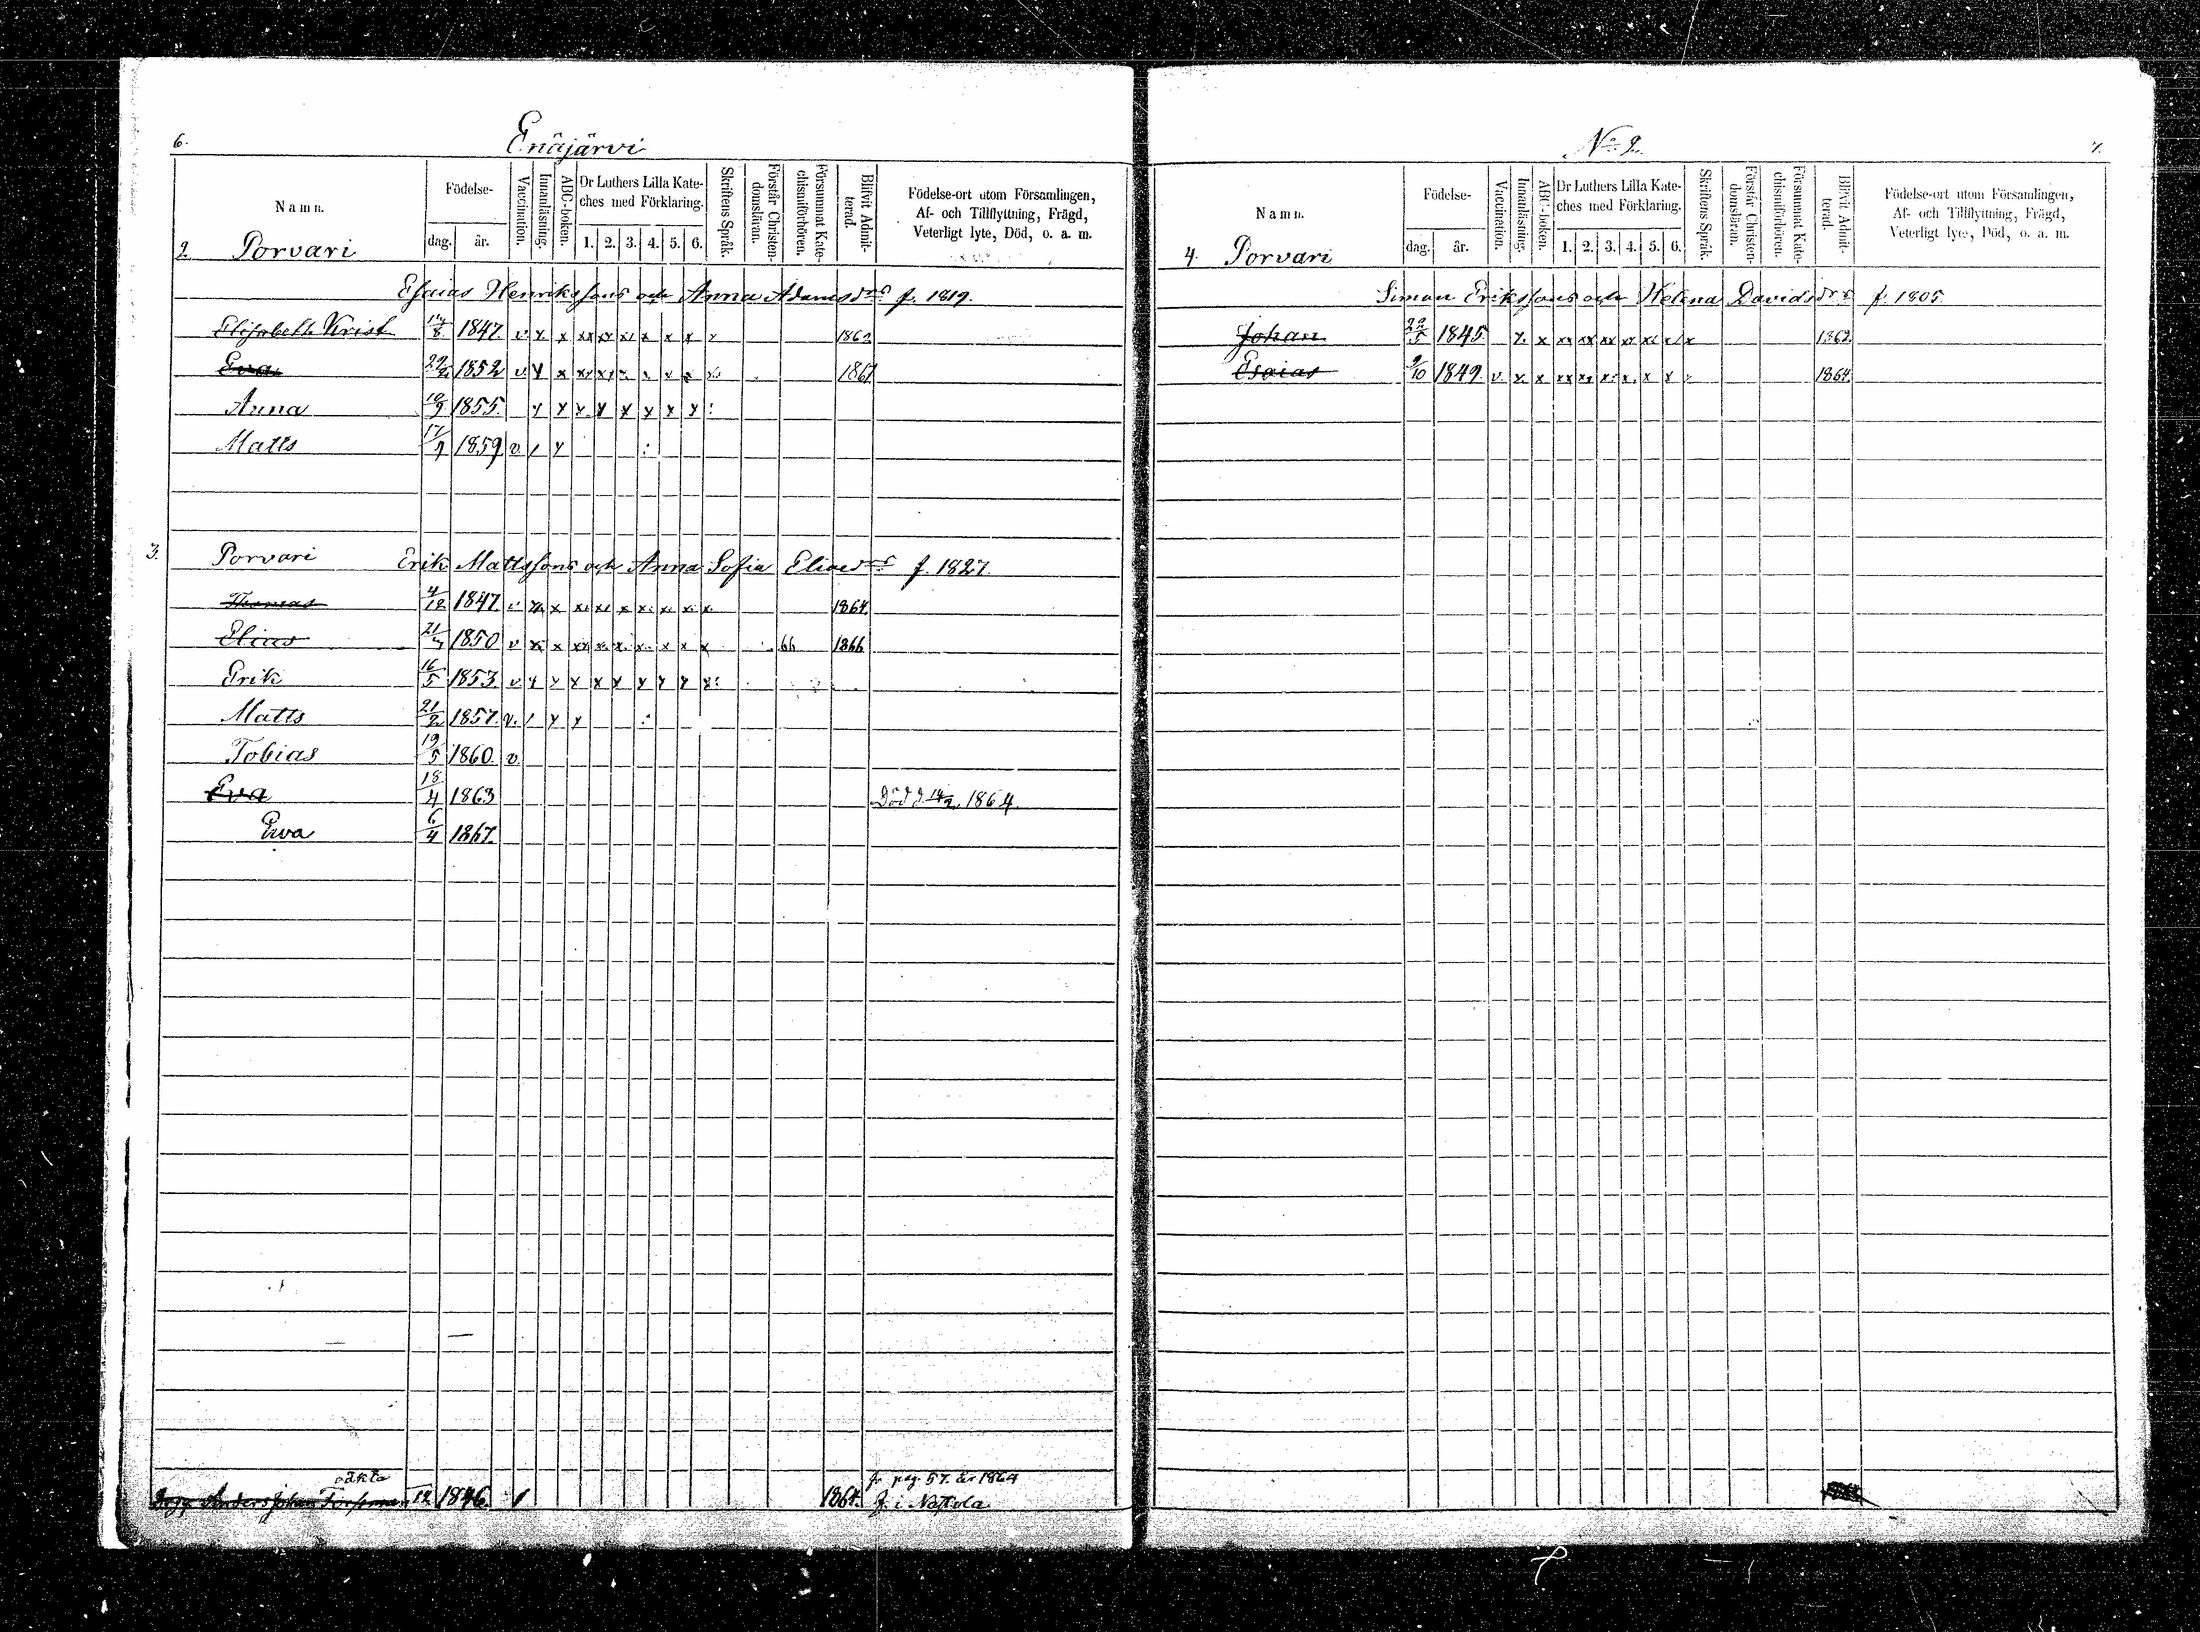 6.
Enäjärvi
Namn.
Födelse-
dag. år.
Vaccination.
Innanläsning.
ABC-boken.
Dr Luthers Lilla Kate-
ches med Förklaring.
1. 2. 3. 4. 5. 6.
Skriftens Språk.
Förstår Christen-
domsläran.
Försummat Kate-
chismiförhören.
Blifvit Admit-
terad.
Födelse-ort utom Församlingen,
Af- och Tillflyttning, Frägd,
Veterligt lyte, Död, o. a. m.
2 Porvari
Esaias Henrikssons och Anna Adamsdrs f. 1819.
Elisabeth Krist 14/8 1847. v. x x xx xx x x x x 1862
Eva 1852 v x x xx xx x x x x 1867.
Anna 10/9 1855. x x x x x x x x
Matts 17/7 1859 v. / x
3. Porvari Erik Mattssons och Anna Sofia Eliaedrs f. 1827.
Thomas 4/12 1847. v x x x x x x x x x 1864.
Elias 21/ 1850 v x x xx x x x x x x 66 1866
Erik 16/5 1853. v x x x x x x x x x
Matts 21/2 1857. v. / x x
Tobias 19/5 1860. v.
Eva 18/4 1863 Död d. 14/2 1864.
Eva 6/4 1867.
oäkta fr. pag. 57. år 1864
Anders Johan 12 1846. / 1864. f. i
No 2.
7.
Namn.
Födelse-
dag. år.
Vaccination.
Innanläsning.
ABC-boken.
Dr Luthers Lilla Kate-
ches med Förklaring.
1. 2. 3. 4. 5. 6.
Skriftens Språk.
Förstår Christen-
domsläran.
Försummat Kate-
chismiförhören.
Blifvit Admit-
terad.
Födelse-ort utom Församlingen,
Af- och Tillflyttning, Frägd,
Veterligt lyte, Död, o. a. m.
4. Porvari
Simon Erikssons och Helena Davidsdrs f. 1805.
Johan 22/5 1845. x. x xx xx xx xx x x x 1862.
Esaias 9/10 1849. v. x. x xx xx x x x x 1864.